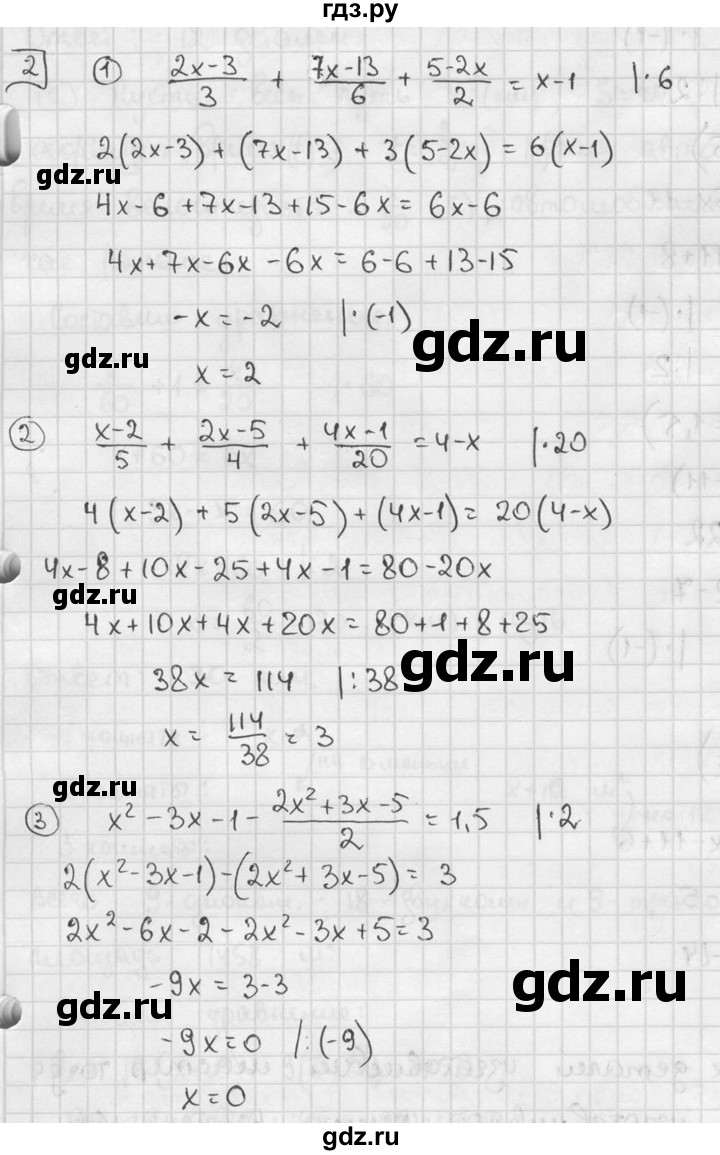 гдз.ру
2 1) (2x-3)/3 + (7x-13)/6 + (5-2x)/2 = x-1 |·6
2(2x-3) + (7x-13) + 3(5-2x) = 6(x-1)
gdz.ru
4x-6+7x-13+15-6x = 6x-6
4x+7x-6x-6x = 6-6+13-15
-x = -2 |·(-1)
gdz.ru
gdz.ru
x = 2
2) (x-2)/5 + (2x-5)/4 + (4x-1)/20 = 4-x |·20
4(x-2) + 5(2x-5) + (4x-1) = 20(4-x)
4x-8+10x-25+4x-1 = 80-20x
gdz.ru
4x+10x+4x+20x = 80+1+8+25
38x = 114 |:38
gdz.ru
x = 114/38 = 3
gdz.ru
3) x²-3x-1-(2x²+3x-5)/2 = 1,5 |·2
2(x²-3x-1)-(2x²+3x-5) = 3
2x²-6x-2-2x²-3x+5=3
-9x = 3-3
gdz.ru
gdz.ru
-9x=0 |:(-9)
x=0
gdz.ru